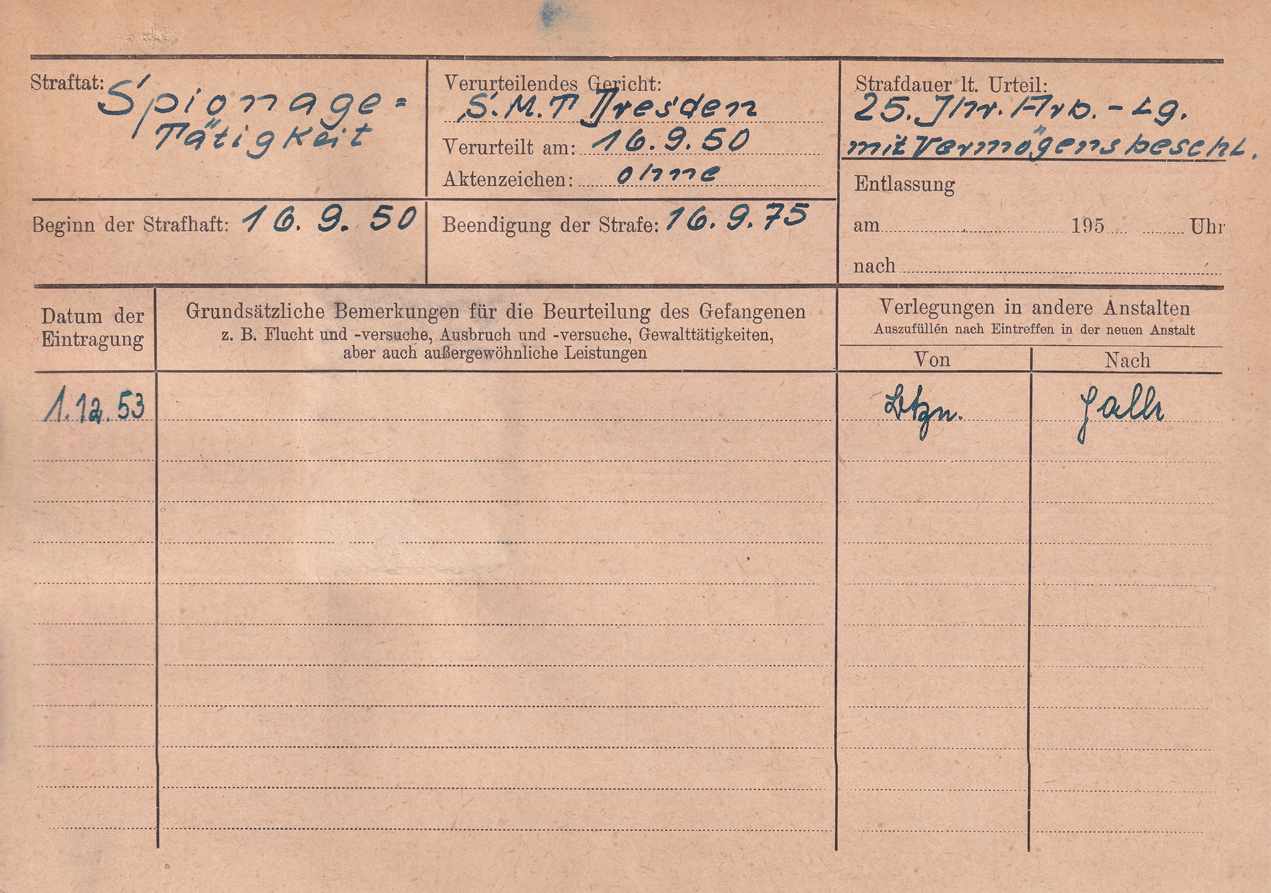 Straftat: Spionage=
Tätigkeit
Verurteilendes Gericht:
S.M.T Dresden
Verurteilt am: 16.9.50
Aktenzeichen: ohne
Strafdauer lt. Urteil:
25. Jhr. Arb.-Lg.
mit Vermögensbeschl.
Entlassung
am 195 Uhr
nach
Beginn der Strafhaft: 16.9.50
Beendigung der Strafe: 16.9.75
Datum der
Eintragung
Grundsätzliche Bemerkungen für die Beurteilung des Gefangenen
z. B. Flucht und -versuche, Ausbruch und -versuche, Gewalttätigkeiten,
aber auch außergewöhnliche Leistungen
Verlegungen in andere Anstalten
Auszufüllen nach Eintreffen in der neuen Anstalt
Von
Nach
1.12.53
Btzn.